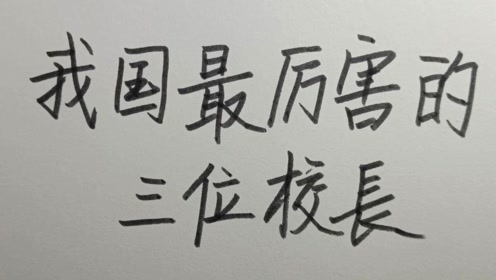 我国最厉害的
三位校長